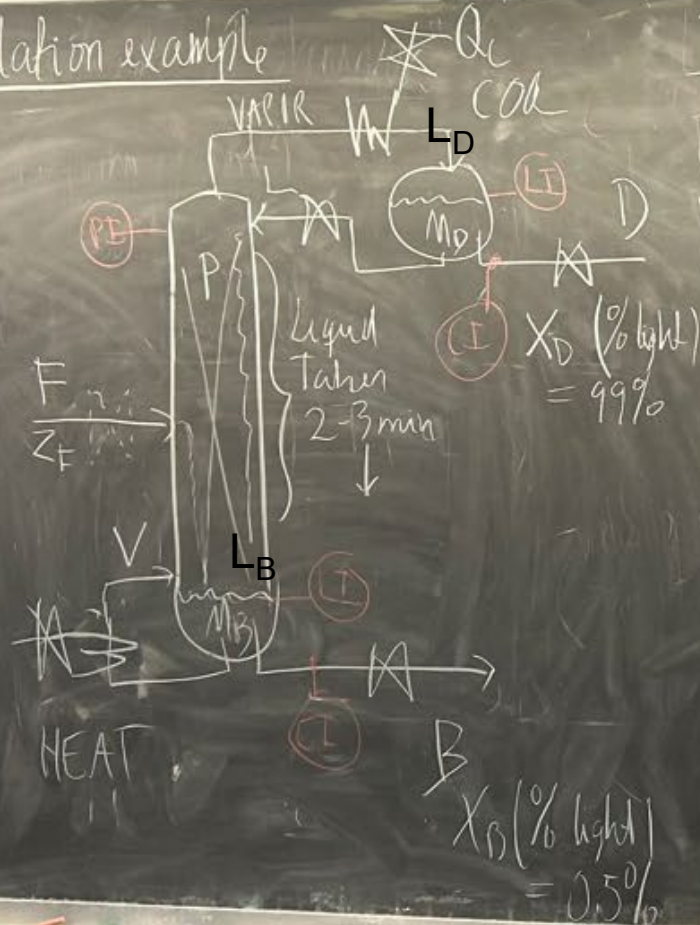 lation example
Qc
COOL
VAPOR
L_D
L
LI
PI
M_D
D
P
CI
X_D (% light)
= 99%
Liquid
Takes
2-3 min
F
Z_F
V
L_B
LI
M_B
HEAT
CI
B
X_B (% light)
= 0.5%